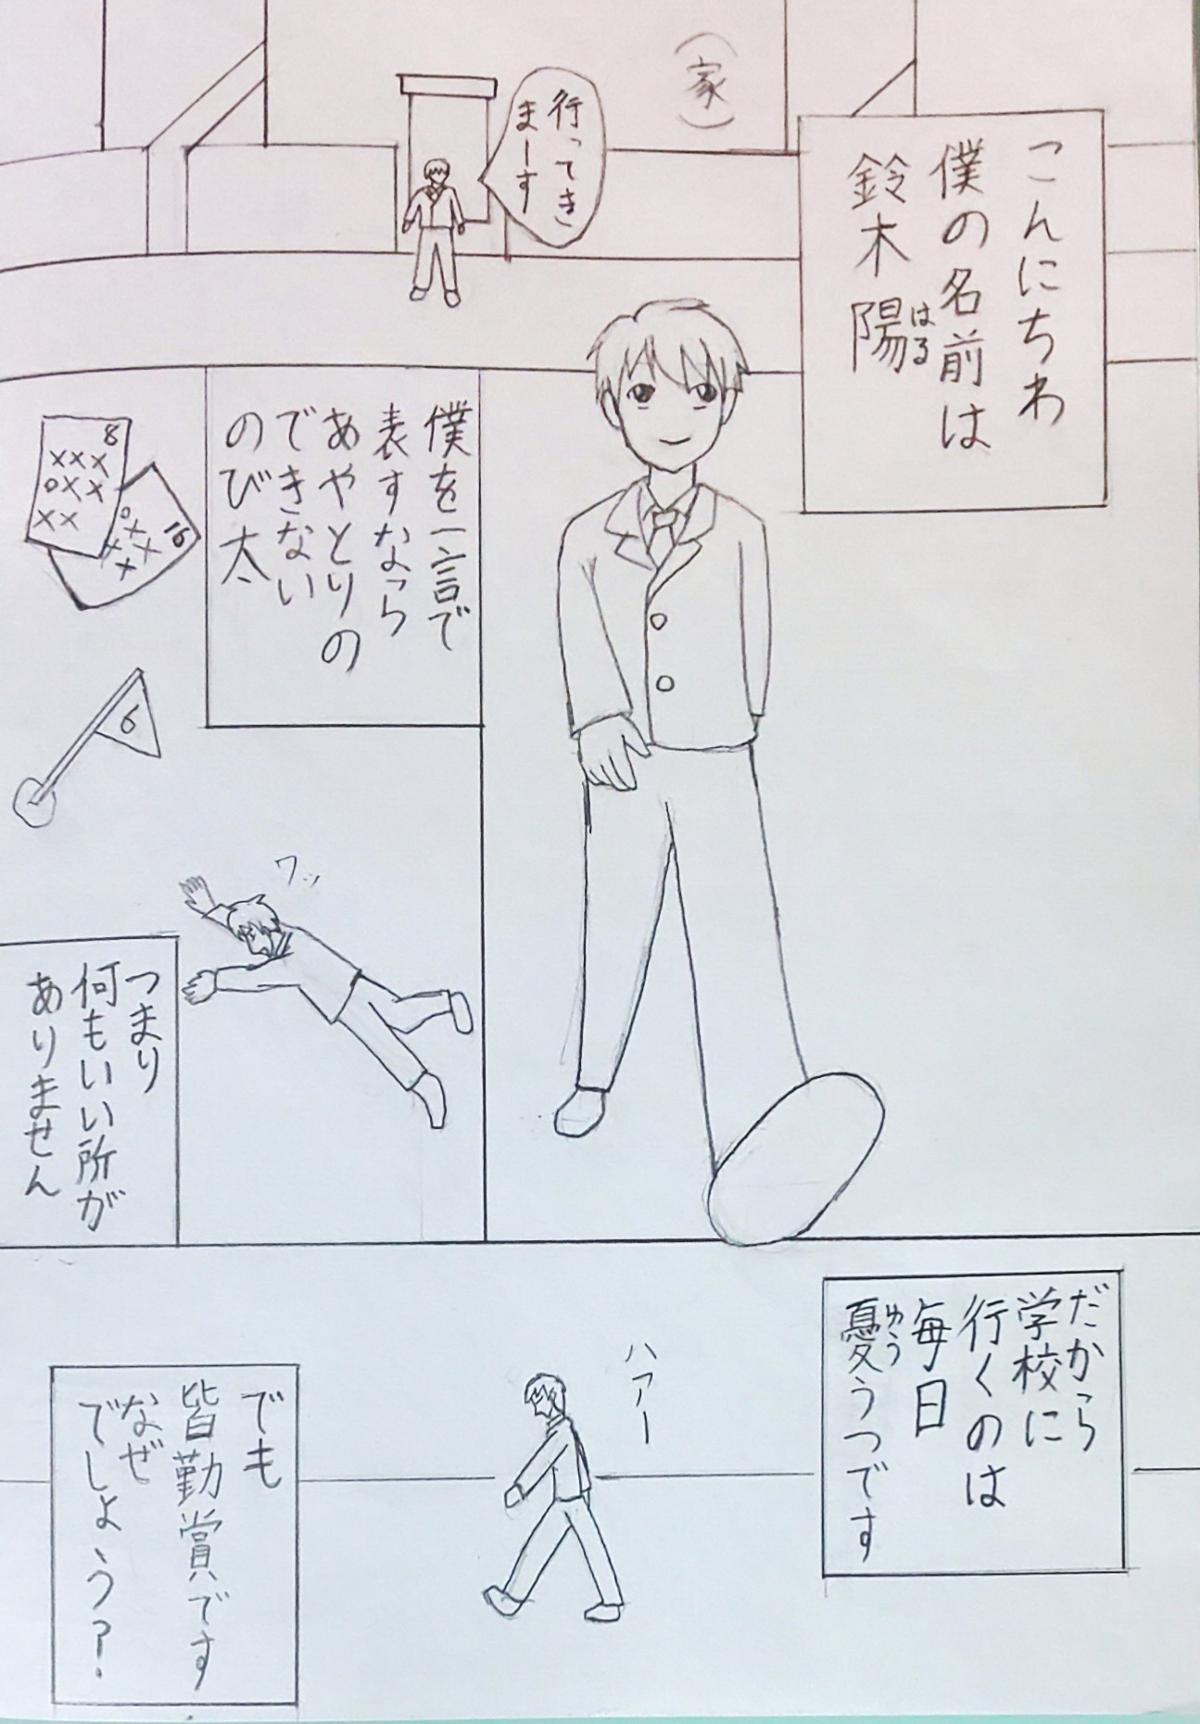 こんにちわ
僕の名前は
鈴木陽
はる
(家)
行ってき
まーす
僕を一言で
表すなら
あやとりの
できない
のび太
8
××××
○××
××
16
○×
××
×
6
ワッ
つまり
何もいい所が
ありません
だから
学校に
行くのは
毎日
憂うつです
ゆう
ハァー
でも
皆勤賞です
なぜ
でしょう?